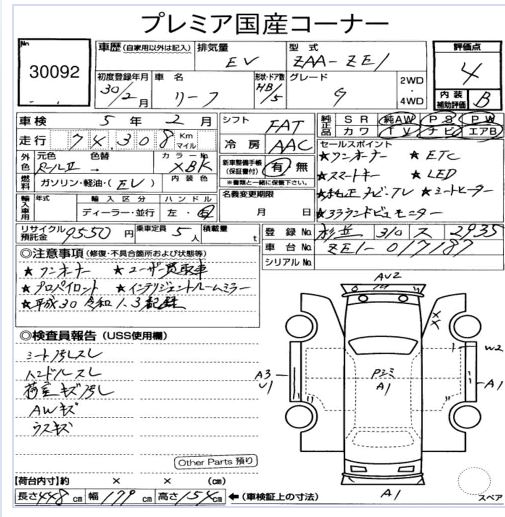 プレミア国産コーナー
No
30092
車歴 (自家用以外は記入)
排気量 EV
型式 ZAA-ZE1
評価点 4
初度登録年月 30/2月
車名 リーフ
形状・ドア数 HB/5
グレード G
2WD・4WD
内装補助評価 B
車検 5年 2月
シフト FAT
純正品 SR 純AW PS PW
カワ TV ナビ エアB
走行 74,308 Km マイル
冷房 AAC
セールスポイント
外色 元色 色替 カラーNo XBK
★ワンオーナー ★ETC
新車整備手帳(保証書付) 有 無
※書類と一緒に保管下さい。
★スマートキー ★LED
燃料 ガソリン・軽油・(EV) 内装色
名義変更期限
月 日
★純正ナビ・TV ★シートヒーター
輸入車用 年式 輸入区分 ハンドル
ディーラー・並行 左・右
★アラウンドビューモニター
リサイクル預託金 9550円
乗車定員 5人
積載量 t
登録No 310 ス 2935
車台No ZE1-017187
シリアルNo
◎注意事項 (修復・不具合箇所および状態等)
★ワンオーナー ★ユーザー買取車
★プロパイロット ★インテリジェントルームミラー
★平成30 令和1.3記録
◎検査員報告 (USS使用欄)
シート汚レスレ
ハンドルスレ
荷室キズ汚レ
AWキズ
ラスキズ
Other Parts 預り
AU2
X
X
W2
A3
U1
A1
A1
A1
スペア
【荷台内寸】約 × × (cm)
長さ 448 cm 幅 179 cm 高さ 154 cm ←(車検証上の寸法)